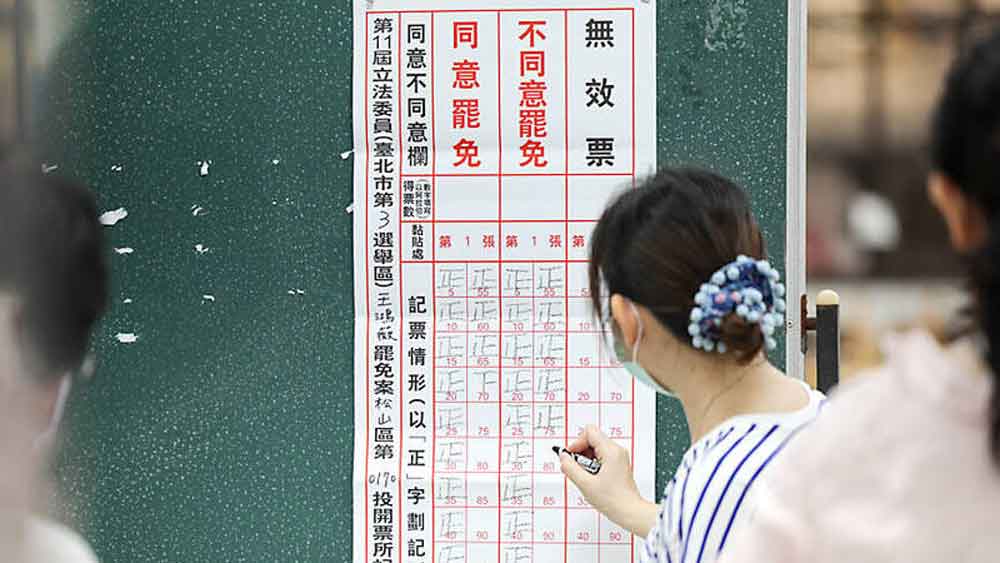 第11屆立法委員(臺北市第3選舉區)王鴻薇罷免案松山區第0170投開票所
同意不同意欄
同意罷免
不同意罷免
無效票
得票數
(數字填寫以阿拉伯)
黏貼處
第 1 張
第 1 張
第
記票情形(以「正」字劃記
正 正 正 正
5 55 5 55 5
正 正 正 正
10 60 10 60 10 60
正 正 正 正
15 65 15 65 15
正 下 正 正
20 70 20 70 20 70
正 正 正
25 75 25 75 75
正 正
30 80 30 80
正 正
35 85 35 85 35 85
正 正
40 90 40 90 40 90
正 正